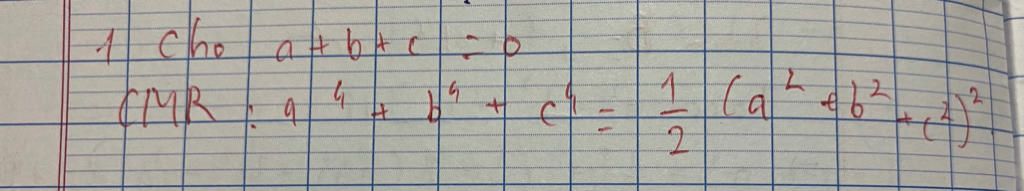 1 Cho a + b + c = 0
CMR : a⁴ + b⁴ + c⁴ = 1/2 (a² + b² + c²)²